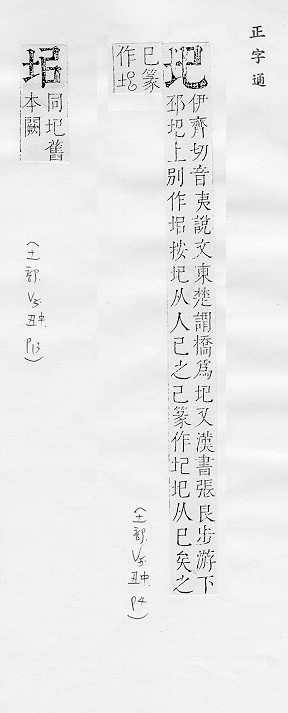 正字通
圯
伊齊切音夷說文東楚謂橋爲圯又漢書張良步游下
邳圯上別作𡊎按圯从人巳之己篆作圮圯从巳矣之
巳篆
作
同圯舊
本闕
(土部
丑中
P4)
(土部
丑中
P13)